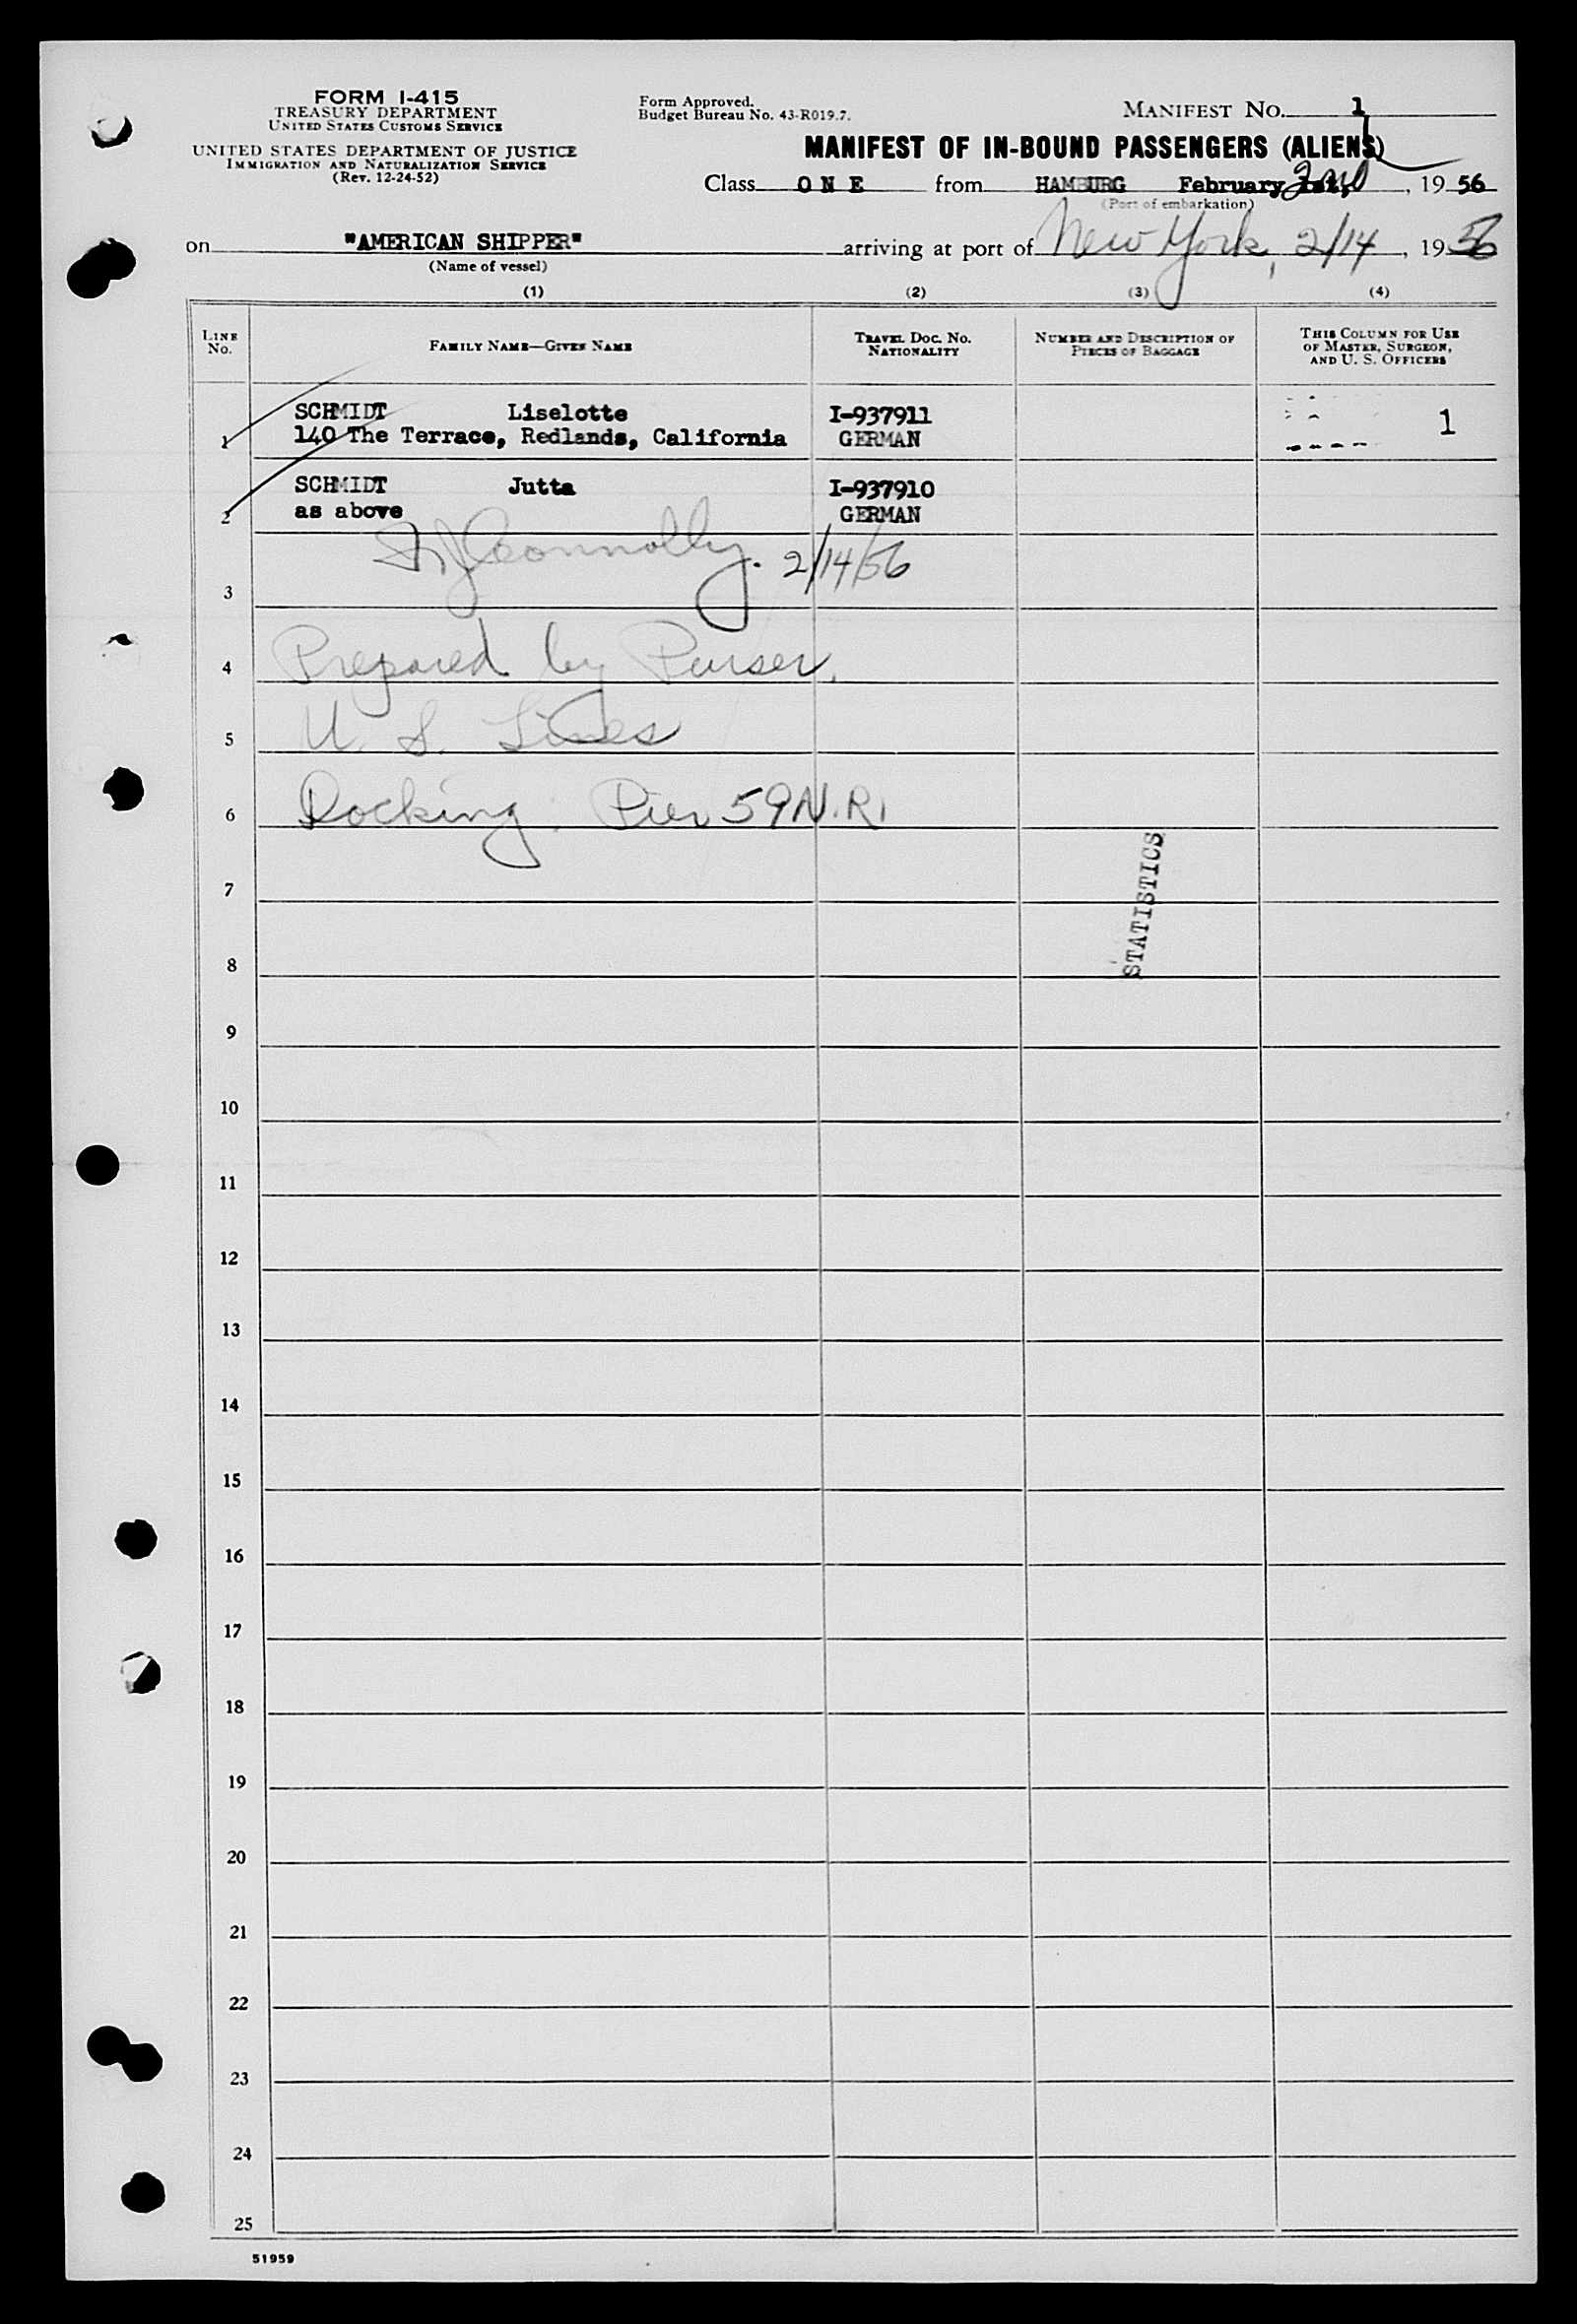 FORM I-415
TREASURY DEPARTMENT
UNITED STATES CUSTOMS SERVICE
UNITED STATES DEPARTMENT OF JUSTICE
IMMIGRATION AND NATURALIZATION SERVICE
(Rev. 12-24-52)
Form Approved.
Budget Bureau No. 43-R019.7.
MANIFEST NO. 1
MANIFEST OF IN-BOUND PASSENGERS (ALIENS)
Class ONE from HAMBURG February, 1st, 2nd, 19 56
(Port of embarkation)
on "AMERICAN SHIPPER" arriving at port of New York, 2/14, 19 56
(Name of vessel)
(1) (2) (3) (4)
LINE NO. FAMILY NAME—GIVEN NAME TRAVEL DOC. NO. NATIONALITY NUMBER AND DESCRIPTION OF PIECES OF BAGGAGE THIS COLUMN FOR USE OF MASTER, SURGEON, AND U. S. OFFICERS
SCHMIDT Liselotte I-937911 1
1 140 The Terrace, Redlands, California GERMAN
SCHMIDT Jutta I-937910
2 as above GERMAN
Connolly. 2/14/56
3
4 Prepared by Purser,
5 U. S. Lines
6 Docking: Pier 59 N.R.
STATISTICS
7
8
9
10
11
12
13
14
15
16
17
18
19
20
21
22
23
24
25
51959